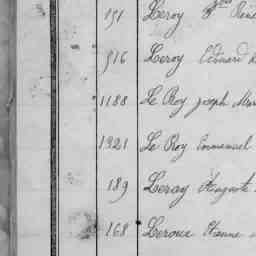 191 Leroy
916 Leroy Edouard
1188 Le Roy Joseph
1921 Le Roy Emmanuel
189 Leray Auguste
168 Leroux Etienne